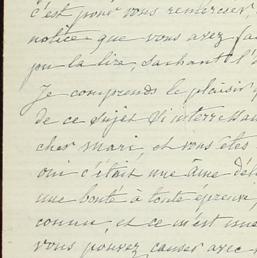 c'est pour vous remercier,
notice que vous avez fai
pu la lire, sachant l'
Je comprends le plaisir q
de ce sujet si intéressan
cher mari, et vous êtes
oui c'était une âme dél
une bonté à toute épreuve,
connu, et ce m'est une
vous pouvez causer avec